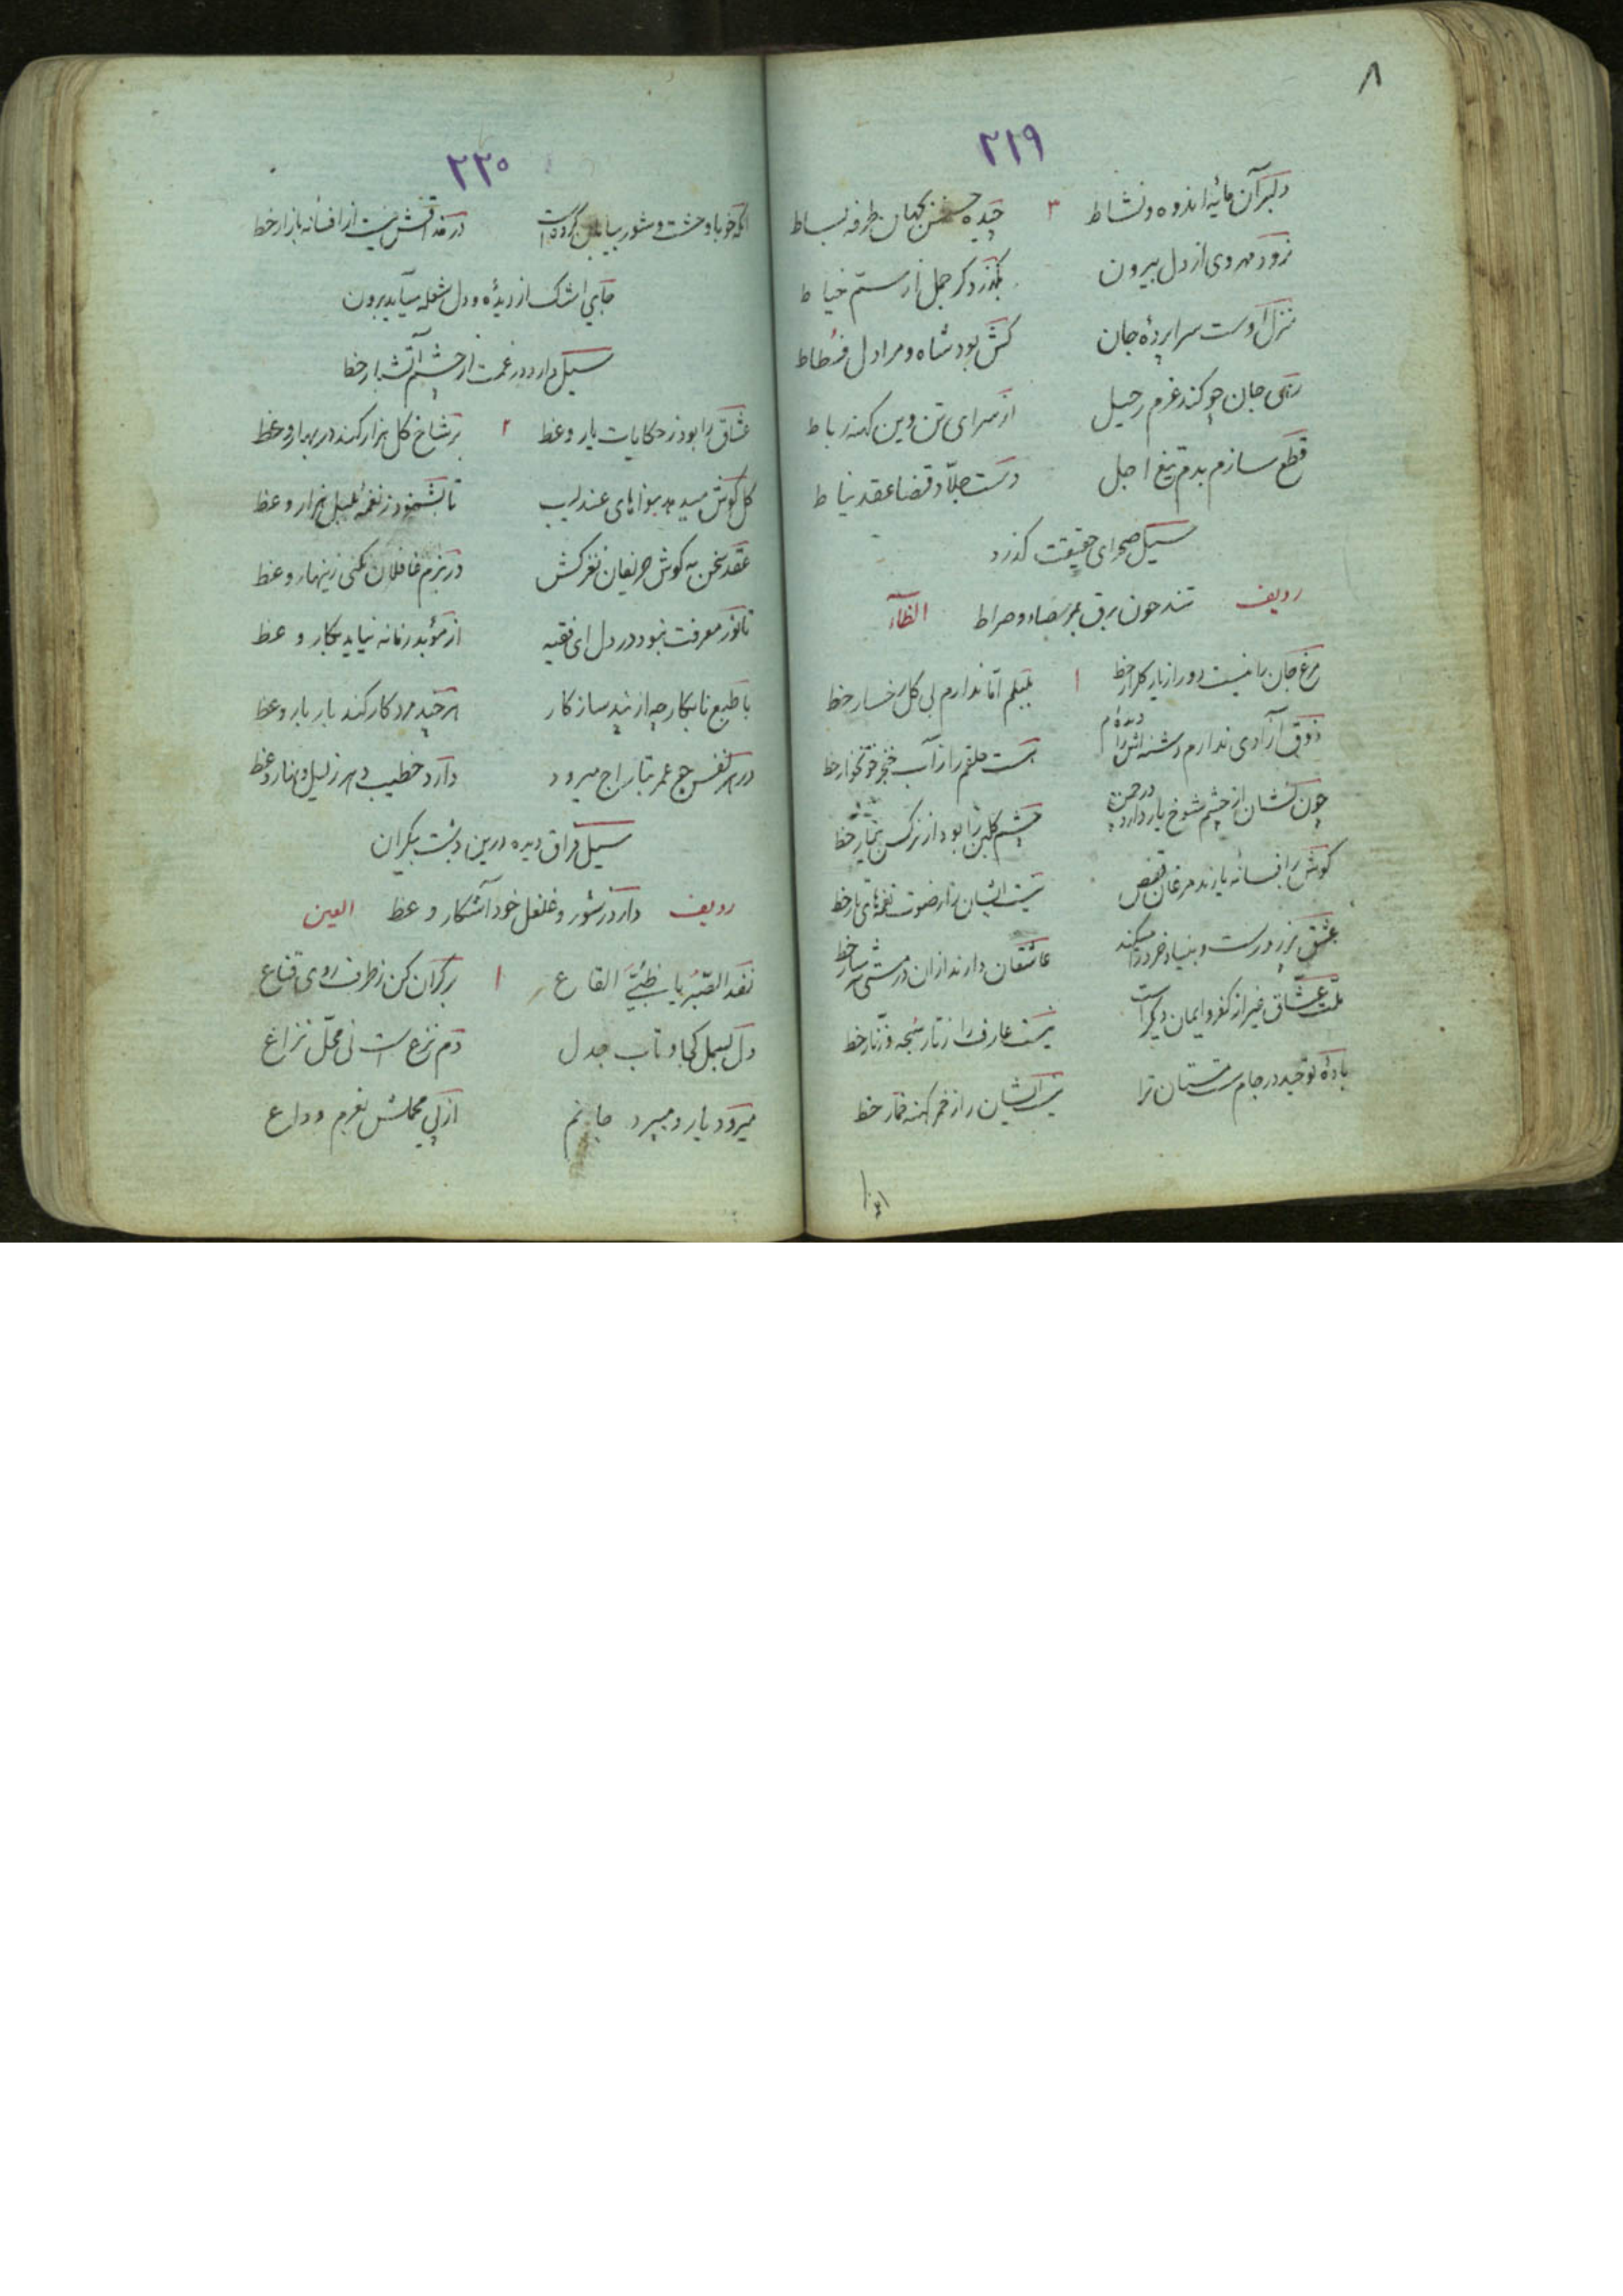 ۸
۲۱۹
دلبر آن مایهٔ اندوه و نشاط ۳ چیده حسنش بجهان طرفه بساط
نرود مهر وی از دل بیرون بگذرد گر جمل از سم خیاط
منزل اوست سراپردهٔ جان کش بود شاه و مرا دل فسطاط
رهی جان چو کند عزم رحیل از سرای تن وین کهنه رباط
قطع سازم بدم تیغ اجل دست جلاد قضا عقد نیاط
سیل صحرای حقیقت گذرد
ردیف تند چون برق بمرصاد و صراط الظاء
مرغ جان را نیست دور از یار گلزار حظ ۱ بلبلم اما ندارم بی گل رخسار حظ
ذوق آزادی ندارم هست حلقم را ز آب خنجر خونخوار حظ
چون کشان از چشم شوخ یار دارد چشم گلبن را بود از نرگس بیمار حظ
گوش را افسانه یازند مرغان قفص نیست ایشان را ز صوت نغمهای تار حظ
عشق بزور درست و بنیاد خرد را میکند عاشقان دارند ازان در مستی سرشار حظ
ملت عشاق غیر از کفر و ایمان دیگر است نیست عارف را ز تار سبحه و زنار حظ
بادهٔ توحید در جام است مستان ترا نیست ایشان را ز خمر کهنه خمار حظ
۲۲۰
آنکه خو با وحشت و شور بیابان کرده است در مذاقش نیست از افسانه بازار حظ
جای اشک از دیدهٔ و دل شعله میآید برون
سیل دارد در غمت از چشم آتشبار حظ
عشاق را بود ز حکایات یار وعظ ۲ بر شاخ گل هزار کند در بهار وعظ
گل گوش میدهد بنواهای عندلیب تا بشنود ز نغمهٔ بلبل هزار وعظ
عقد سخن به گوش حریفان نغز کش در بزم غافلان نکنی زینهار وعظ
تا نور معرفت نبود در دل ای فقیه از موبد زمانه نیاید بکار وعظ
با طبع نابکار چه از پند ساز کار هر چند مرد کار کند بار بار وعظ
در هر نفس جو عمر بتاراج میرود دارد خطیب دهر ز لیل و نهار وعظ
سیل فراق دیده درین دشت بیکران
ردیف دارد ز شور و غلغل خود آشکار وعظ العین
نفد الصبر یا ظبی القاع ۱ بر کران کن ز طرف روی قناع
دل بسمل کجا و تاب جدل دم نزع است نی محل نزاع
میرود یار و میبرد جانم از پی محملش بعزم وداع